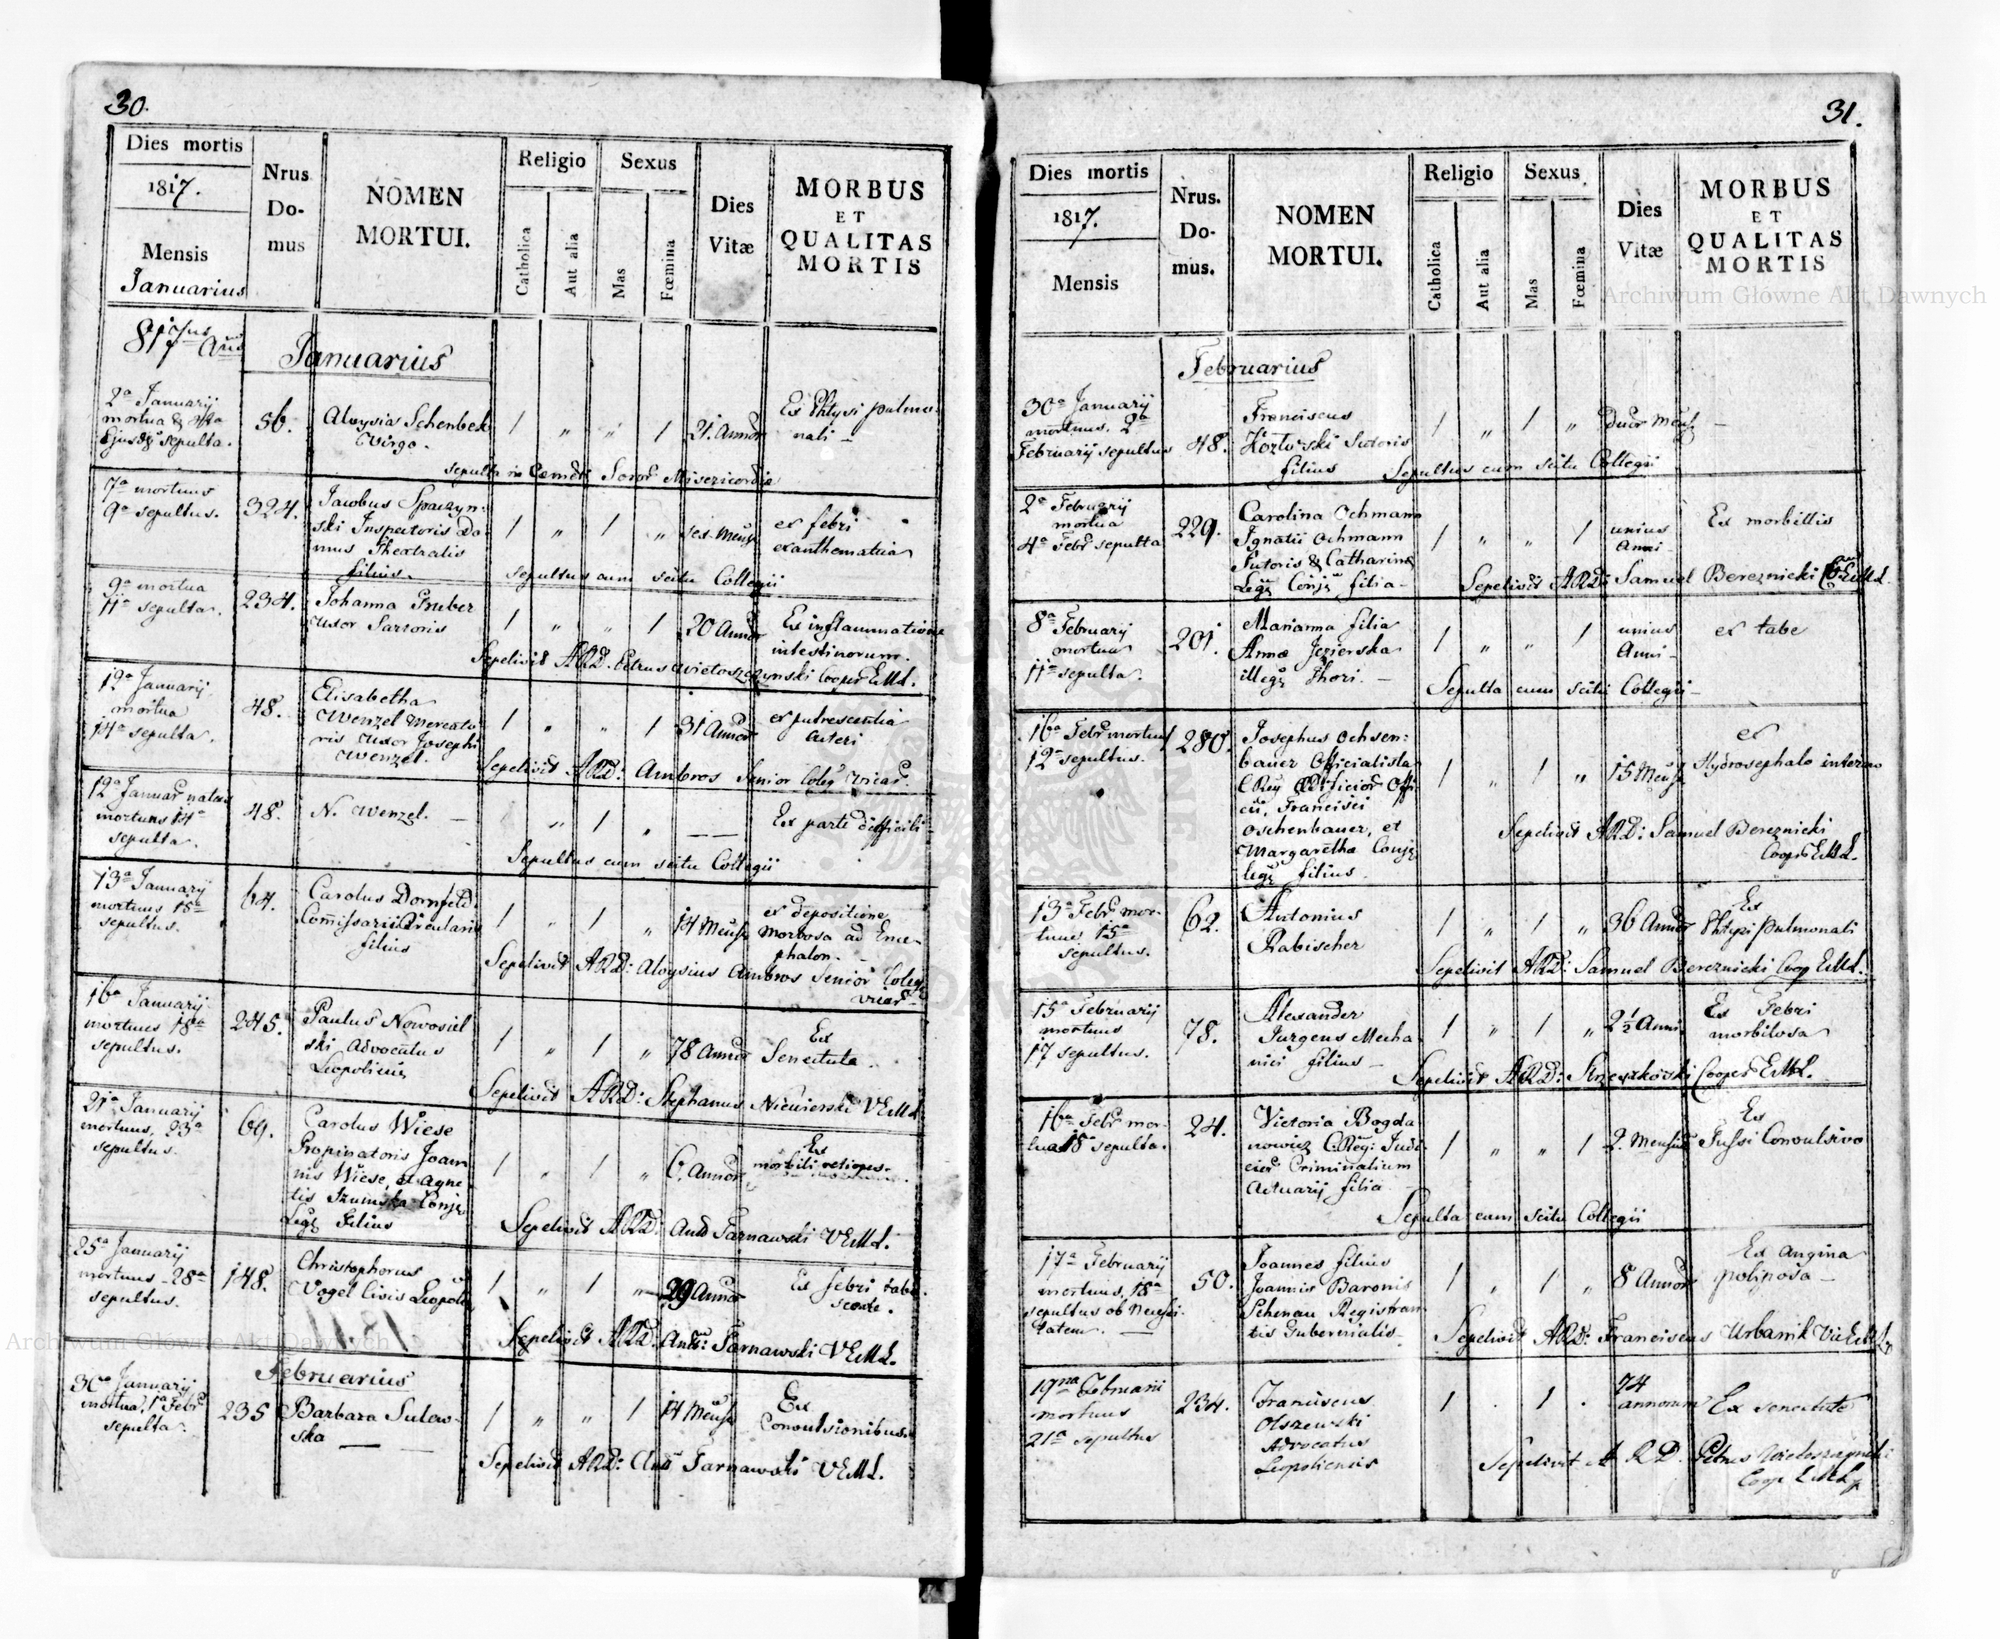 30.
Dies mortis
1817.
Mensis
Januarius
Nrus
Do-
mus
NOMEN
MORTUI.
Religio
Catholica
Aut alia
Sexus
Mas
Fœmina
Dies
Vitæ
MORBUS
ET
QUALITAS
MORTIS
817
Januarius
2a Januarij
mortua & 4ta
Ejusdē sepulta.
56.
Aloysia Schenbek
Virgo.
1 " " 1
21. Annor
Ex Phtysi pulmo-
nali –
sepulta in Cemet Soror Misericordie
7a mortuus
9a sepultus.
324.
Jacobus Spaczyn-
ski Inspectoris Do-
mus Theatralis
filius.
1 " 1 "
sex Mens
ex febri
exanthematica
sepultus cum scitu Collegii
9a mortua
11a sepulta.
234.
Johanna Gruber
Uxor Sartoris
1 " " 1
20 Annor
Ex inflammatione
intestinorum.
Sepelivit ARD. Petrus Wieloszczynski Coop EML.
12a Januarij
mortua
14a sepulta.
48.
Elisabetha
Wenzel Mercato-
ris Uxor Josephi
Wenzel.
1 " " 1
31 Annor
ex putrescentia
uteri
Sepelivit ARD: Ambros Senior Coleg Vicar.
12a Januar natus
mortuus 14a
sepulta.
48.
N. Wenzel. –
" 1 "
– –
Ex partu difficili –
Sepultus cum scitu Collegii
13a January
mortuus 15a
sepultus.
64.
Carolus Dornfeld
Comissarii Circularis
filius
1 " 1 "
14 Mensi
ex depositione
Morbosa ad Ence-
phalon.
Sepelivit ARD: Aloysius Ambros Senior Coleg
Vicar
16a Januarij
mortuus 18a
sepultus.
245.
Paulus Nowosiel
ski Advocatus
Leopolien
1 " 1 "
78 Annor
Ex
Senectute.
Sepelivit ARD: Stephanus Niewierski VEML
21a January
mortuus, 23a
sepultus.
69.
Carolus Wiese
Propinatoris Joan-
nis Wiese, et Agne-
tis Szumska Conjg
Legg Filius
1 " 1 "
6. Annor
Ex
Sepelivit ARD: And Tarnawski VEML.
25a January
mortuus 28a
sepultus.
148.
Christophorus
Vogel Civis Leopolien
1 " 1 "
29 Annor
Ex febri tabe-
scente.
Sepelivit ARD: And: Tarnawski VEML.
Februarius
30a January
mortua, 1a Febr
sepulta.
235
Barbara Sulew-
ska – –
1 " " 1
14 Mensi
Ex
Convulsionibus.
Sepelivit ARD: And Tarnawski VEML.
31.
Dies mortis
1817.
Mensis
Nrus.
Do-
mus.
NOMEN
MORTUI.
Religio
Catholica
Aut alia
Sexus
Mas
Fœmina
Dies
Vitæ
MORBUS
ET
QUALITAS
MORTIS
Februarius
30a January
mortuus. 2a
Februarij sepultus
48.
Franciscus
Kozlowski Sutoris
filius
1 " 1 "
Duor Mens. –
Sepultus cum scitu Collegii
2a Februarij
mortua
4a Febr sepulta
229.
Carolina Ochmann
Ignatii Ochmann
Sutoris & Catharina
Legg Conjg filia –
1 " " 1
unius
Anni
Ex morbillis
Sepelivit ARD: Samuel Bereznicki CEML.
8a February
mortua
11a sepulta.
201.
Marianna filia
Annæ Jezierska
illegg Thori. –
1 " " 1
unius
Anni –
ex tabe
Sepulta cum scitu Collegii –
16a Febr mortuus
12a sepultus.
280.
Josephus Ochsen-
bauer Officialista
Francisci
Oschenbauer, et
Margaretha Conjg
legg filius.
1 " 1 "
15 Mensi
ex
Hydrosephalo interno
Sepelivit ARD: Samuel Bereznicki
Coop EML.
13a Febr mor-
tuus 15a
sepultus.
62.
Antonius
Rabischer
1 " 1 "
36 Annor
Ex
Phtysi Pulmonali
Sepelivit ARD: Samuel Bereznicki Coop EML.
15a Februarij
mortuus
17 sepultus.
78.
Alexander
Jurgens Mecha-
nici filius –
1 " 1 "
2 1/2 Anni
Ex Febri
morbilosa
Sepelivit ARD: Strzeszkowski Coop EML.
16a Febr mor-
tua 18 sepulta.
24.
Victoria Bogda
nowicz C. Reg: Judi-
cior Criminalium
Actuarij filia
1 " " 1
2. Mensium
Ex
Tussi Convulsivo
Sepulta cum scitu Collegii
17a February
mortuus, 18a
sepultus ob Necessi-
tatem. –
50.
Joannes filius
Joannis Baronis
Schenau Registran-
tis Gubernialis –
1 " 1 "
8 Annor
Ex Angina
poliposa –
Sepelivit ARD: Franciscus Urbanik VicEML
19na Februarii
mortuus
21a sepultus
234.
Franciscus
Olszewski
Advocatus
Leopoliensis
1 . 1 .
74
annorum
Ex senectute
Sepelivit A R D. Petrus Wieloszczynski
Coop EML
Archiwum Główne Akt Dawnych
Archiwum Główne Akt Dawnych